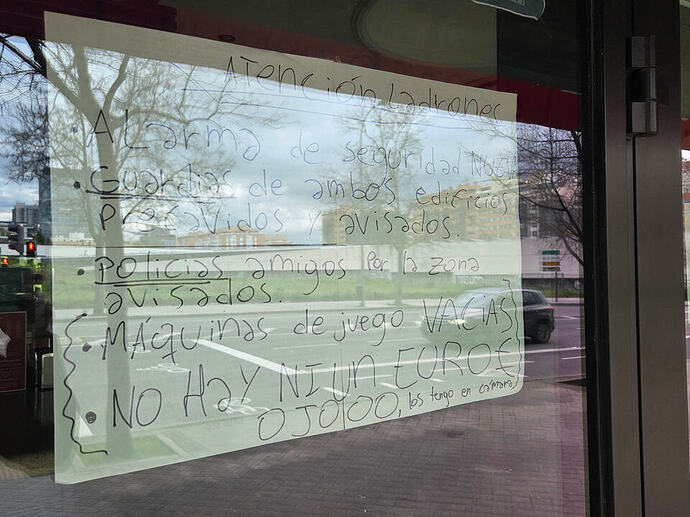 Atención Ladrones
Alarma de seguridad
• Guardias de ambos edificios
Precavidos y avisados.
• Policias amigos por la zona
avisados.
• Máquinas de juego VACIAS
• NO HAY NI UN EURO €
OJOOO, los tengo en cámara